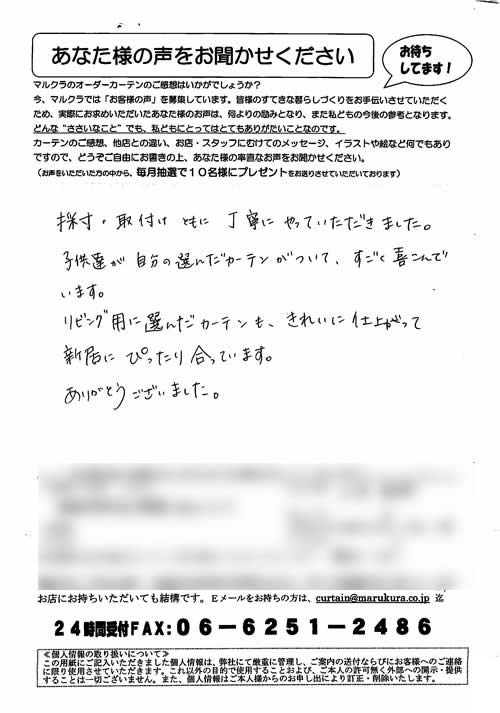 あなた様の声をお聞かせください
お待ち
してます!
マルクラのオーダーカーテンのご感想はいかがでしょうか?
今、マルクラでは「お客様の声」を募集しています。皆様のすてきな暮らしづくりをお手伝いさせていただく
ため、実際にお求めいただいたあなた様のお声は、何よりの励みとなり、また私どもの今後の参考となります。
どんな“ささいなこと”でも、私どもにとってはとてもありがたいことなのです。
カーテンのご感想、他店との違い、お店・スタッフにむけてのメッセージ、イラストや絵など何でもあり
ですので、どうぞご自由にお書きの上、あなた様の率直なお声をお聞かせください。
(お声をいただいた方の中から、毎月抽選で10名様にプレゼントをお送りさせていただいております)
採寸・取付け ともに 丁寧に やっていただきました。
子供達が 自分の選んだカーテンがついて、すごく喜こんで
います。
リビング用に選んだカーテンも、きれいに仕上がって
新居に ぴったり合っています。
ありがとうございました。
お店にお持ちいただいても結構です。Eメールをお持ちの方は、curtain@marukura.co.jp 迄
24時間受付FAX:06-6251-2486
≪個人情報の取り扱いについて≫
この用紙にご記入いただきました個人情報は、弊社にて厳重に管理し、ご案内の送付ならびにお客様へのご連絡
に限り使用させていただきます。これ以外の目的で使用することおよび、ご本人の許可無く外部への開示・提供
することは一切ございません。また、個人情報はご本人様からのお申し出により訂正・削除いたします。